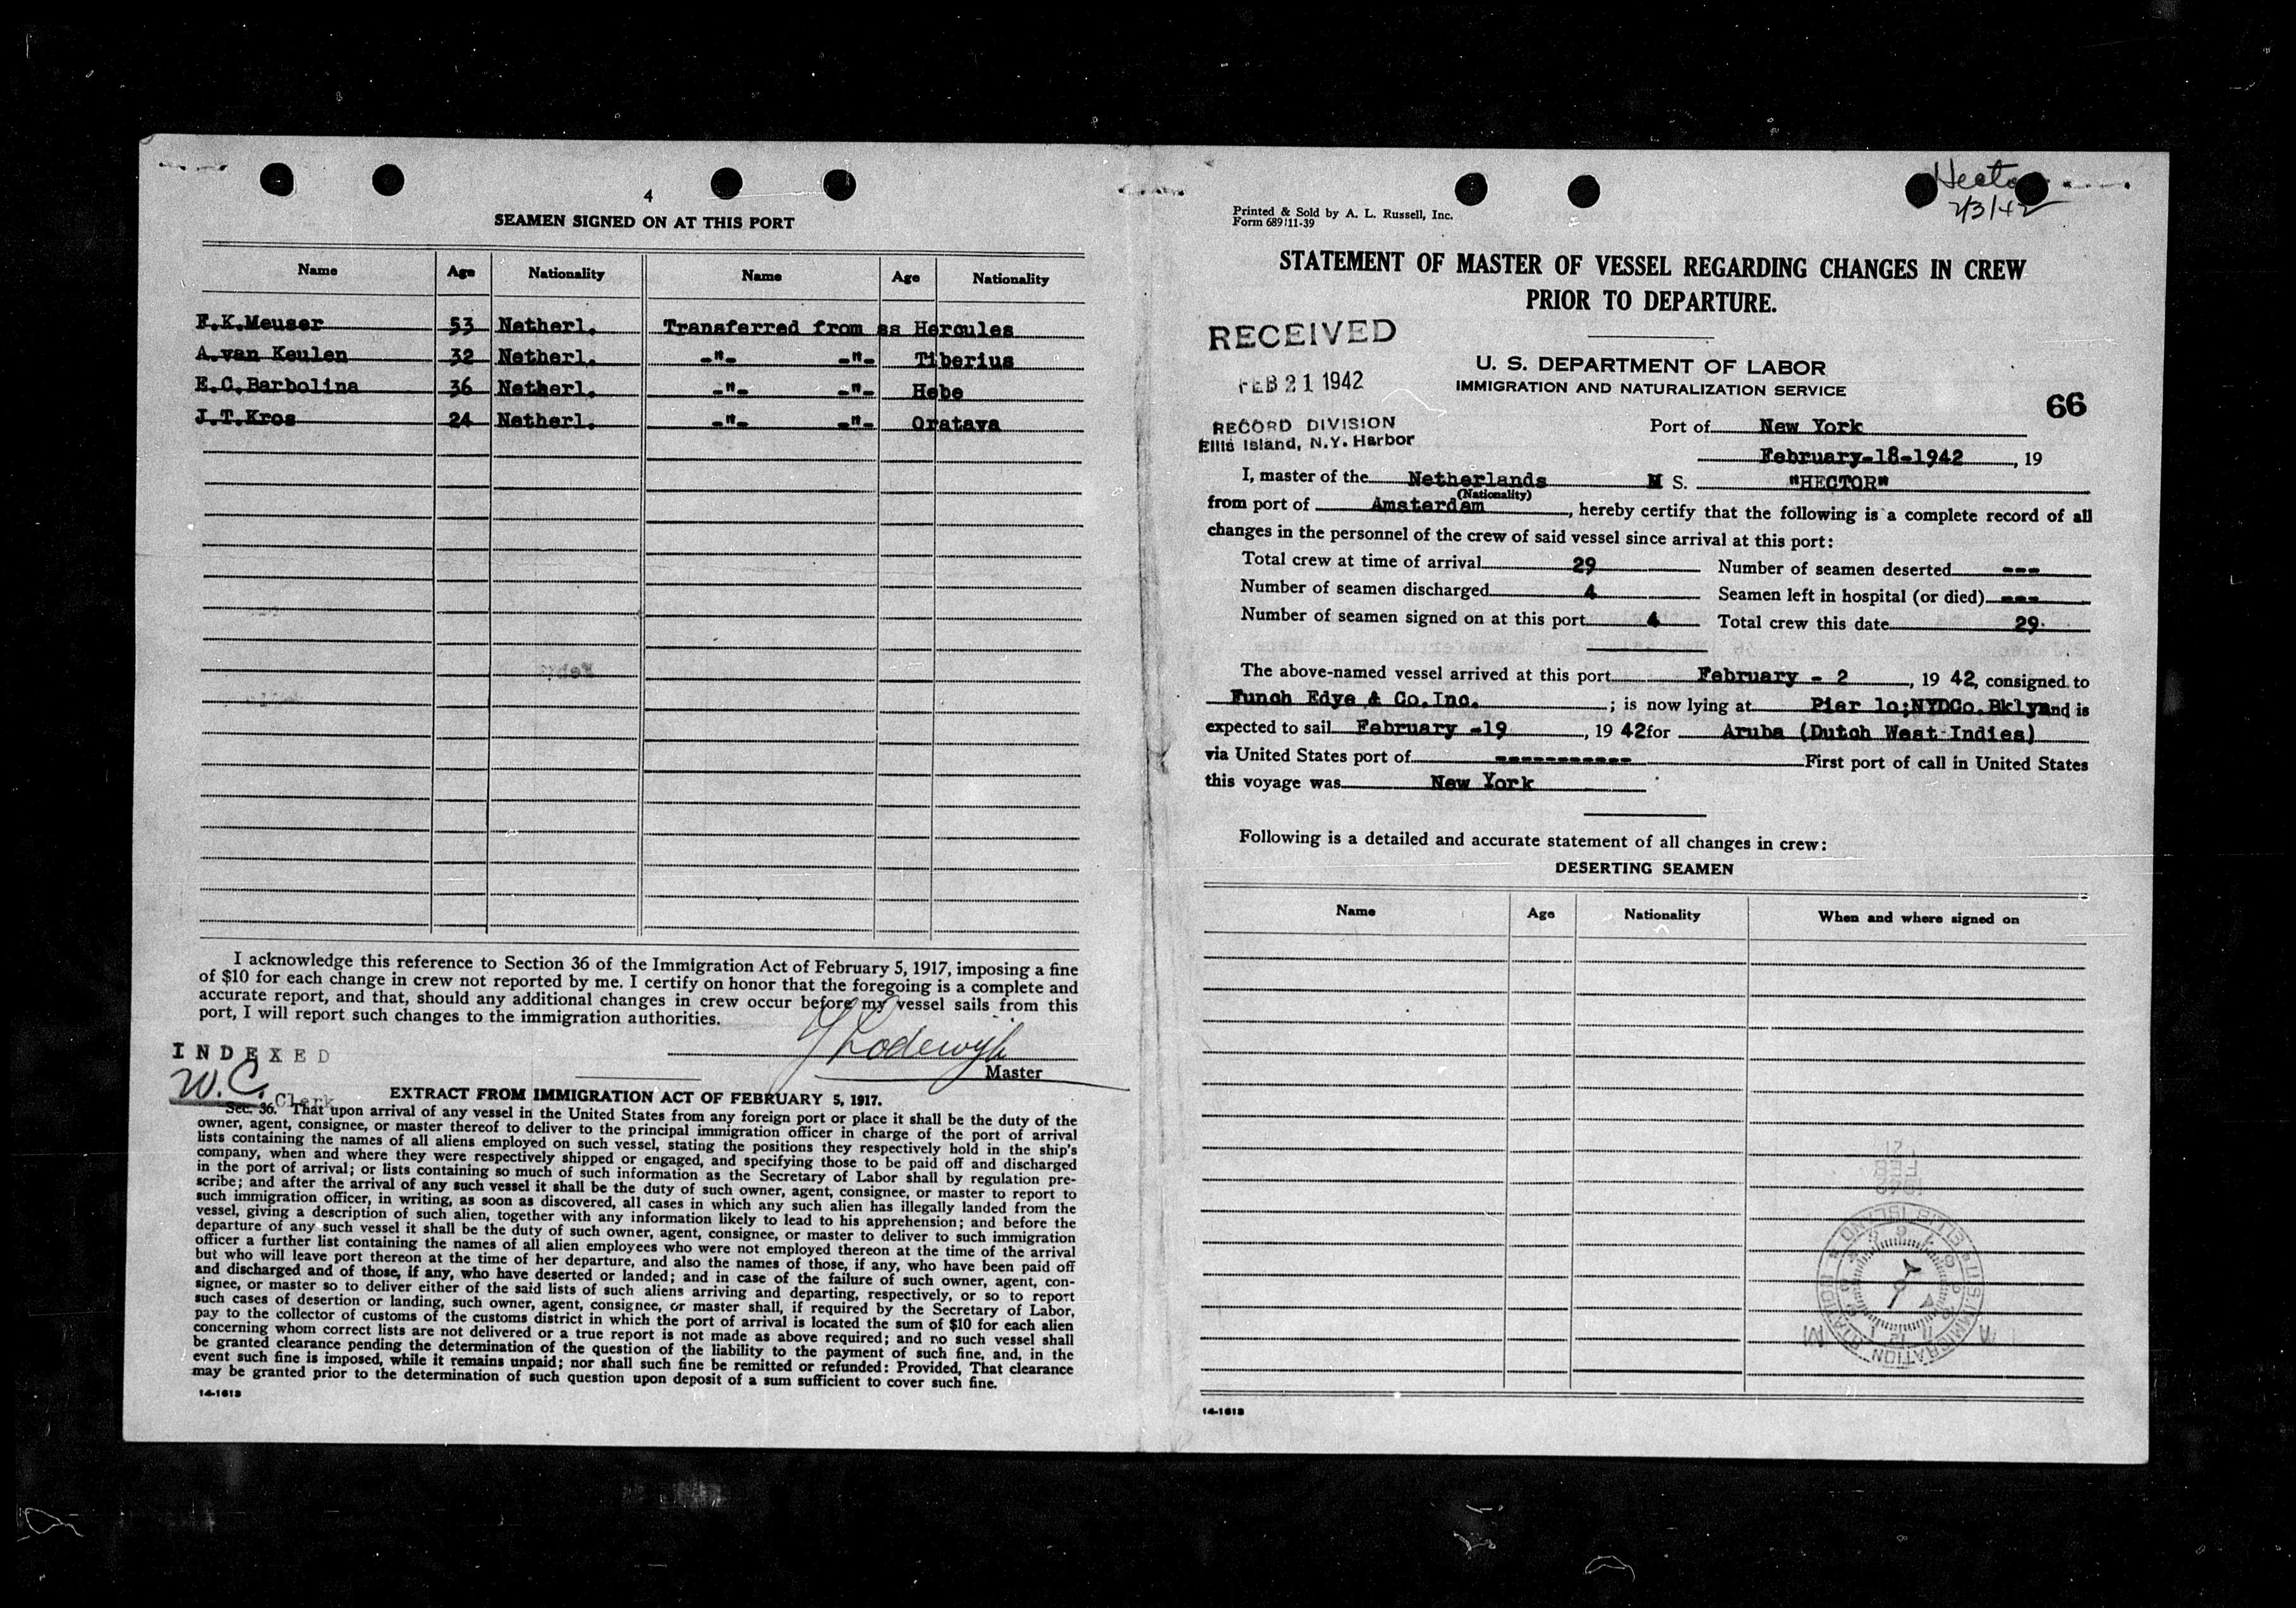 4
SEAMEN SIGNED ON AT THIS PORT
Name Age Nationality Name Age Nationality
F.K.Meuser 53 Netherl. Transferred from ss Hercules
A.van Keulen 32 Netherl. -"- -"- Tiberius
E.C.Barbolina 36 Netherl. -"- -"- Hebe
J.T.Kros 24 Netherl. -"- -"- Oratava
I acknowledge this reference to Section 36 of the Immigration Act of February 5, 1917, imposing a fine
of $10 for each change in crew not reported by me. I certify on honor that the foregoing is a complete and
accurate report, and that, should any additional changes in crew occur before my vessel sails from this
port, I will report such changes to the immigration authorities.
Lodewyk
Master
INDEXED
W.C. Clerk
EXTRACT FROM IMMIGRATION ACT OF FEBRUARY 5, 1917.
Sec. 36. That upon arrival of any vessel in the United States from any foreign port or place it shall be the duty of the
owner, agent, consignee, or master thereof to deliver to the principal immigration officer in charge of the port of arrival
lists containing the names of all aliens employed on such vessel, stating the positions they respectively hold in the ship's
company, when and where they were respectively shipped or engaged, and specifying those to be paid off and discharged
in the port of arrival; or lists containing so much of such information as the Secretary of Labor shall by regulation pre-
scribe; and after the arrival of any such vessel it shall be the duty of such owner, agent, consignee, or master to report to
such immigration officer, in writing, as soon as discovered, all cases in which any such alien has illegally landed from the
vessel, giving a description of such alien, together with any information likely to lead to his apprehension; and before the
departure of any such vessel it shall be the duty of such owner, agent, consignee, or master to deliver to such immigration
officer a further list containing the names of all alien employees who were not employed thereon at the time of the arrival
but who will leave port thereon at the time of her departure, and also the names of those, if any, who have been paid off
and discharged and of those, if any, who have deserted or landed; and in case of the failure of such owner, agent, con-
signee, or master so to deliver either of the said lists of such aliens arriving and departing, respectively, or so to report
such cases of desertion or landing, such owner, agent, consignee, or master shall, if required by the Secretary of Labor,
pay to the collector of customs of the customs district in which the port of arrival is located the sum of $10 for each alien
concerning whom correct lists are not delivered or a true report is not made as above required; and no such vessel shall
be granted clearance pending the determination of the question of the liability to the payment of such fine, and, in the
event such fine is imposed, while it remains unpaid; nor shall such fine be remitted or refunded: Provided, That clearance
may be granted prior to the determination of such question upon deposit of a sum sufficient to cover such fine.
14-1613
Hector
2/3/42
Printed & Sold by A. L. Russell, Inc.
Form 689 11-39
STATEMENT OF MASTER OF VESSEL REGARDING CHANGES IN CREW
PRIOR TO DEPARTURE.
RECEIVED
FEB 21 1942
RECORD DIVISION
Ellis Island, N.Y. Harbor
U. S. DEPARTMENT OF LABOR
IMMIGRATION AND NATURALIZATION SERVICE
66
Port of New York
February-18-1942, 19
I, master of the Netherlands M S. "HECTOR"
(Nationality)
from port of Amsterdam, hereby certify that the following is a complete record of all
changes in the personnel of the crew of said vessel since arrival at this port:
Total crew at time of arrival 29 Number of seamen deserted ---
Number of seamen discharged 4 Seamen left in hospital (or died) ---
Number of seamen signed on at this port 4 Total crew this date 29.
The above-named vessel arrived at this port February - 2, 19 42, consigned to
Funch Edye & Co.Inc. ; is now lying at Pier 1o;NYDCo.Bklyn and is
expected to sail February -19, 19 42 for Aruba (Dutch West Indies)
via United States port of ----------- First port of call in United States
this voyage was New York
Following is a detailed and accurate statement of all changes in crew:
DESERTING SEAMEN
Name Age Nationality When and where signed on
14-1613